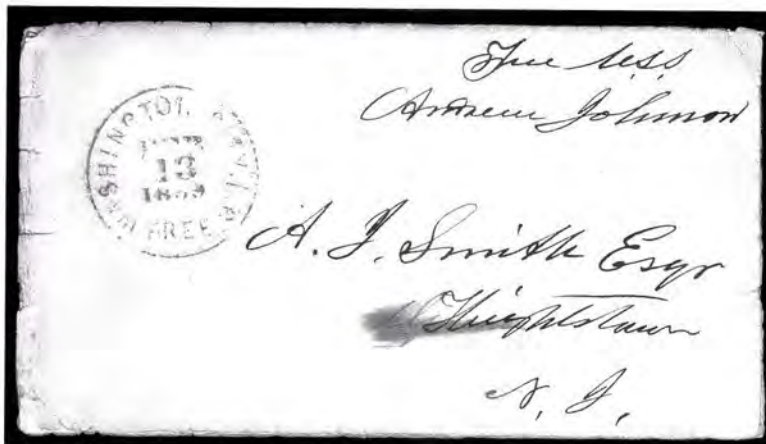 Free U.S.S
Andrew Johnson
WASHINGTON
13
FREE
A. J. Smith Esqr
Hightstown
N. J.